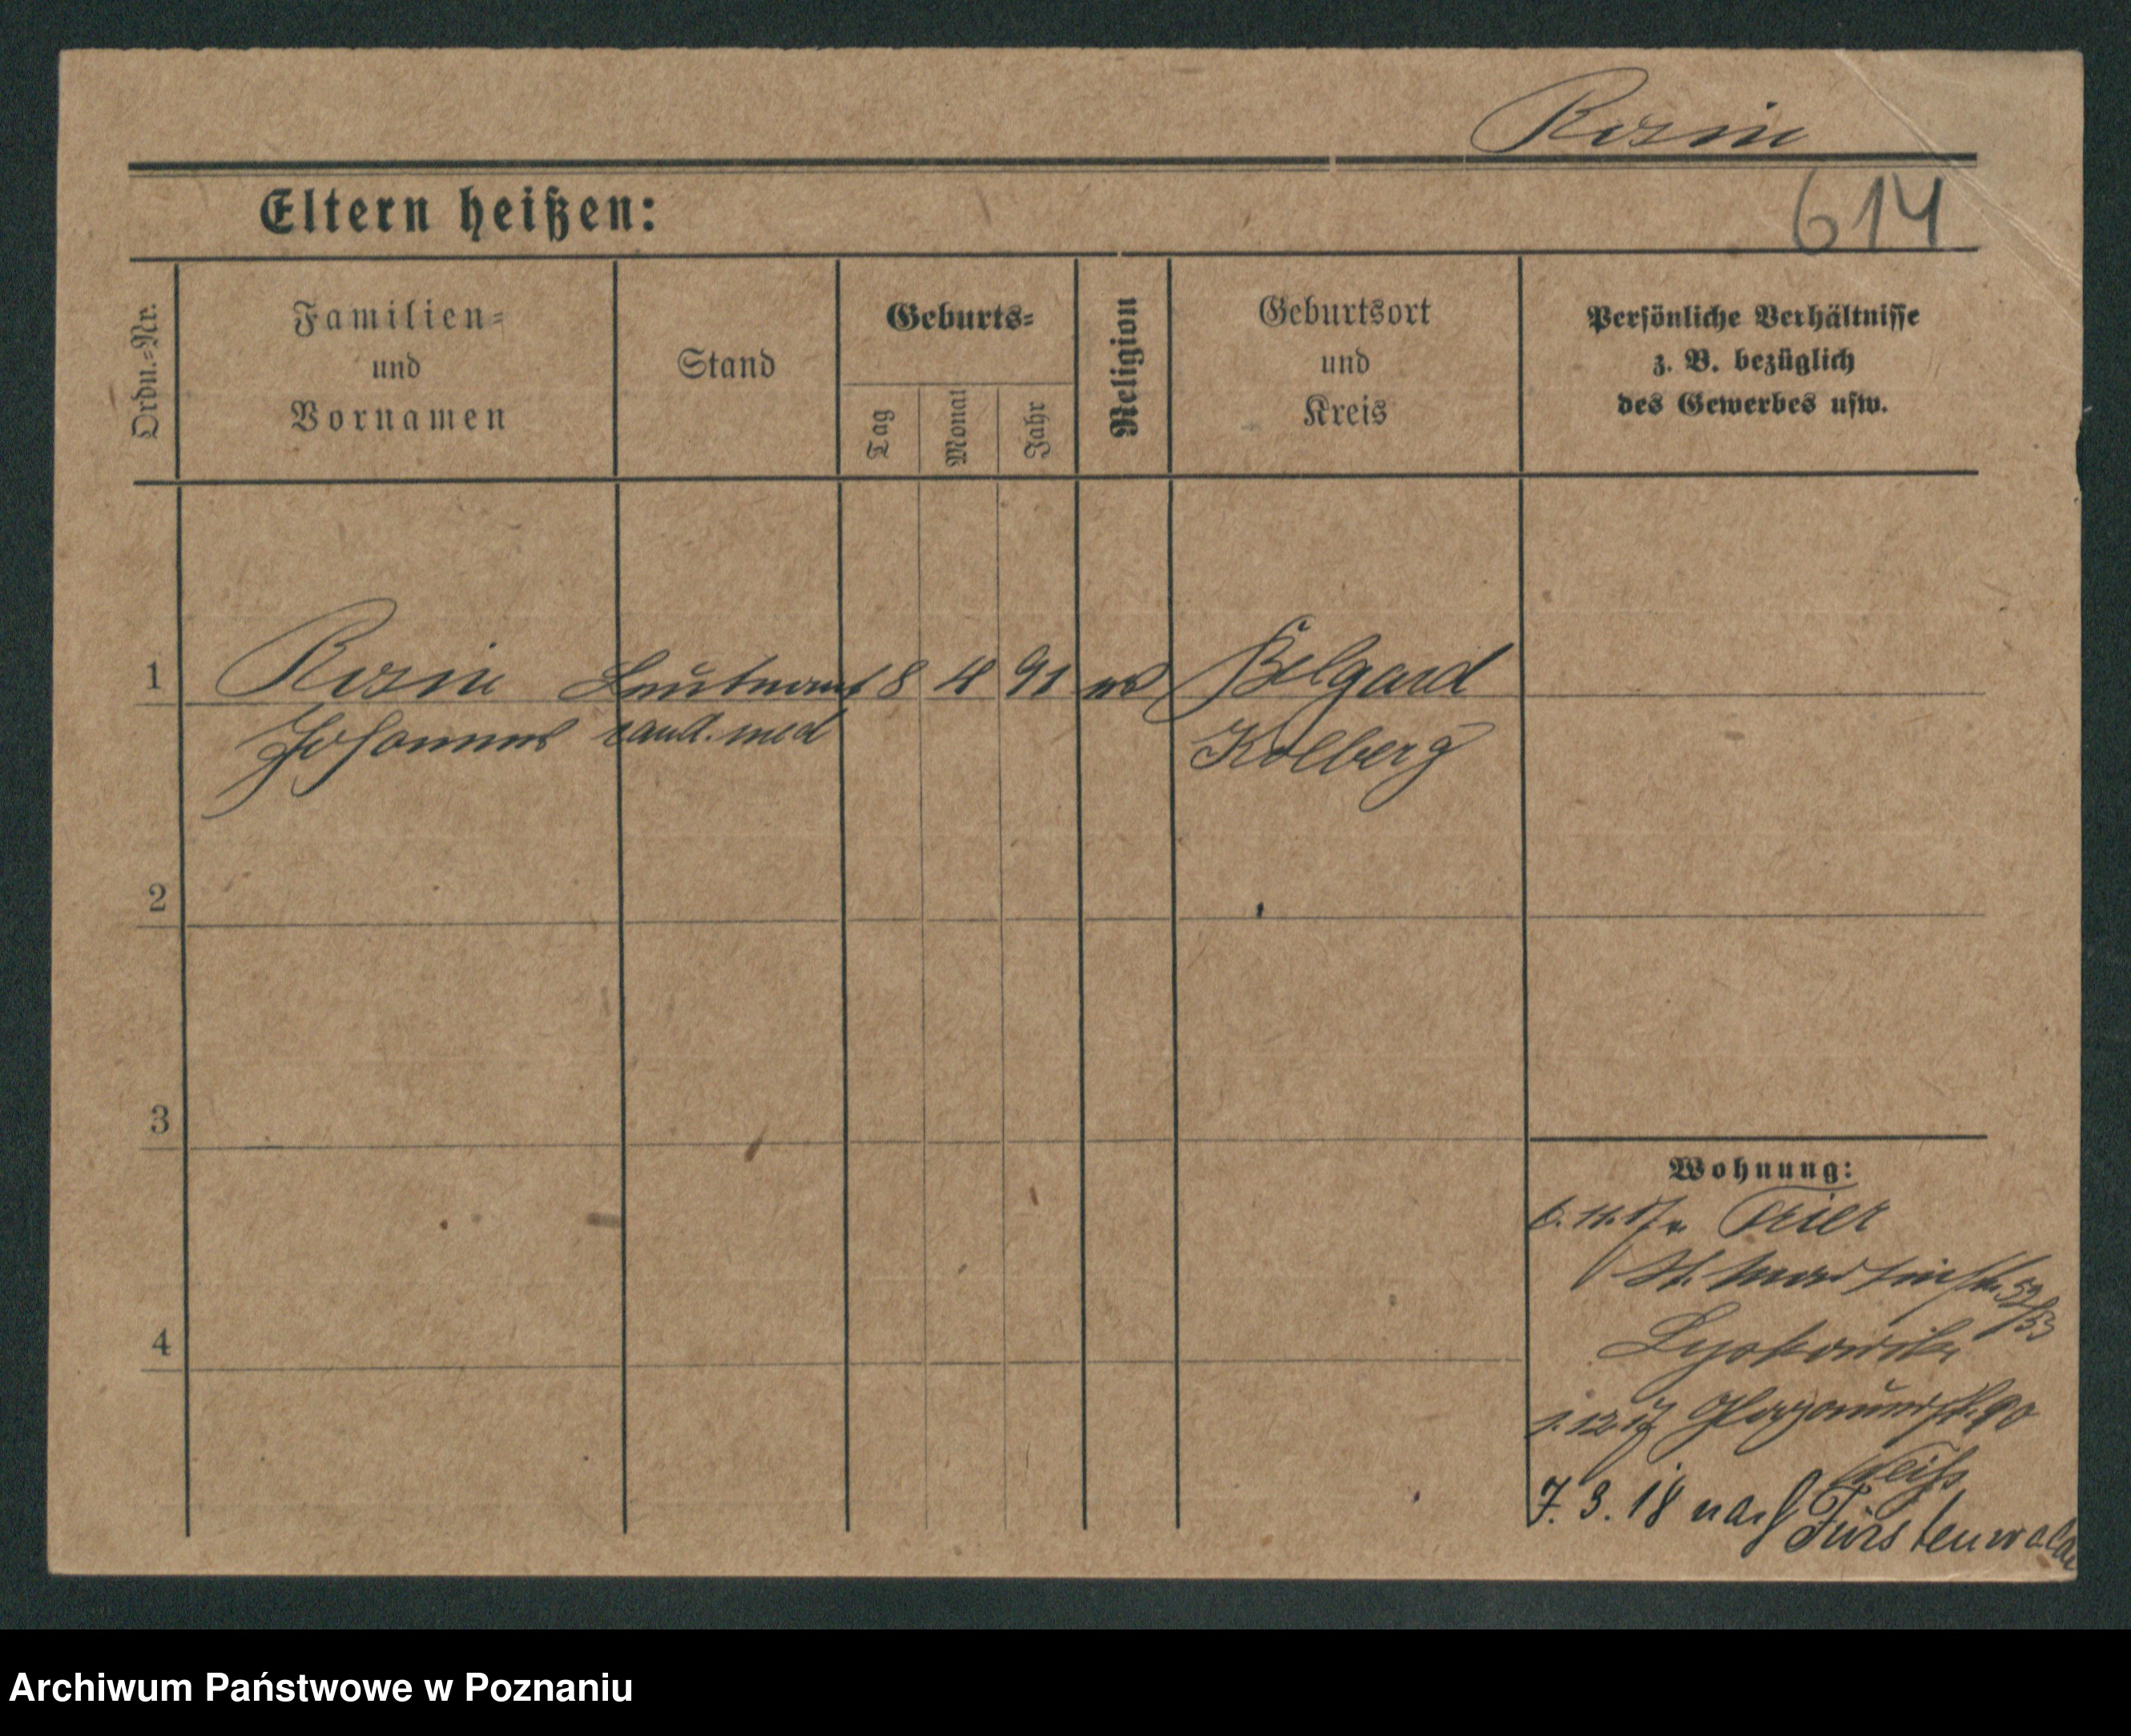 Rosin
Eltern heißen:
614
Ordn.=Nr.
Familien=
und
Vornamen
Stand
Geburts=
Tag
Monat
Jahr
Religion
Geburtsort
und
Kreis
Persönliche Verhältnisse
z. B. bezüglich
des Gewerbes usw.
1
Rosin Leutnant 8 4 91 ev Belgard
Johannes cand. med Kolberg
2
3
4
Wohnung:
6.11.17 v. Trier
St. Martinstr. 52/53
1.12.17 90
7. 3. 18 nach Fürstenwalde